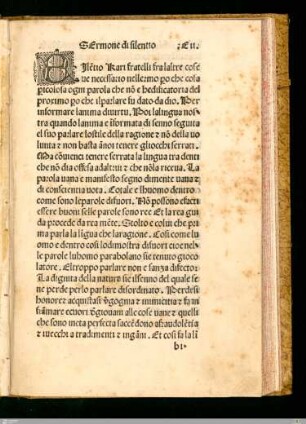 SErmone di silentio :EII.
Ilecto Kari fratelli fra laltre cose
ve necessario nellezimo po che cosa
picciola ogni parola che nõ e hedificatoria del
proximo po che ilparlare fu dato da dio. Per
informare lamma
lingua nos
tra quando lamma e iformata di senno seguita
el suo parlare lo stile della ragione z nõ della vo
lunta z non basta anoi tenere gliocchi serrati.
Ma cõuienci tenere serrata la lingua tra denti
che nõ dia offesa adaltrui z che nõla riceua. La
parola vana e manifesto segno dimente vana z
di conscientia vota. Cotale e lhuomo dentro
come sono leparole difuori. Nõ possono
essere buoni se lle parole sono ree Et la rea gui
da procede da rea mẽte. Stolto e colui che pri
ma parla la ligua che laragione. Cosi come lu
omo e dentro cosi lodimostra difuori cioe nel
le parole luhomo parabolano sie tenuto gioco
latore. El troppo parlare non e sanza difecto.
La dignita della natura sie ilsenno del quale se
ne perde perlo parlare disordinato. Perdesi
honore z acquistasi vgogna z inimicitia z fa in
fiãmare ecuori vgiouani alle cose vane z quelli
che sono meta perfecta saccẽdono afraudolẽtia
z ivecchi a tradimenti z ingãni. Et cosi fa la li
bi.